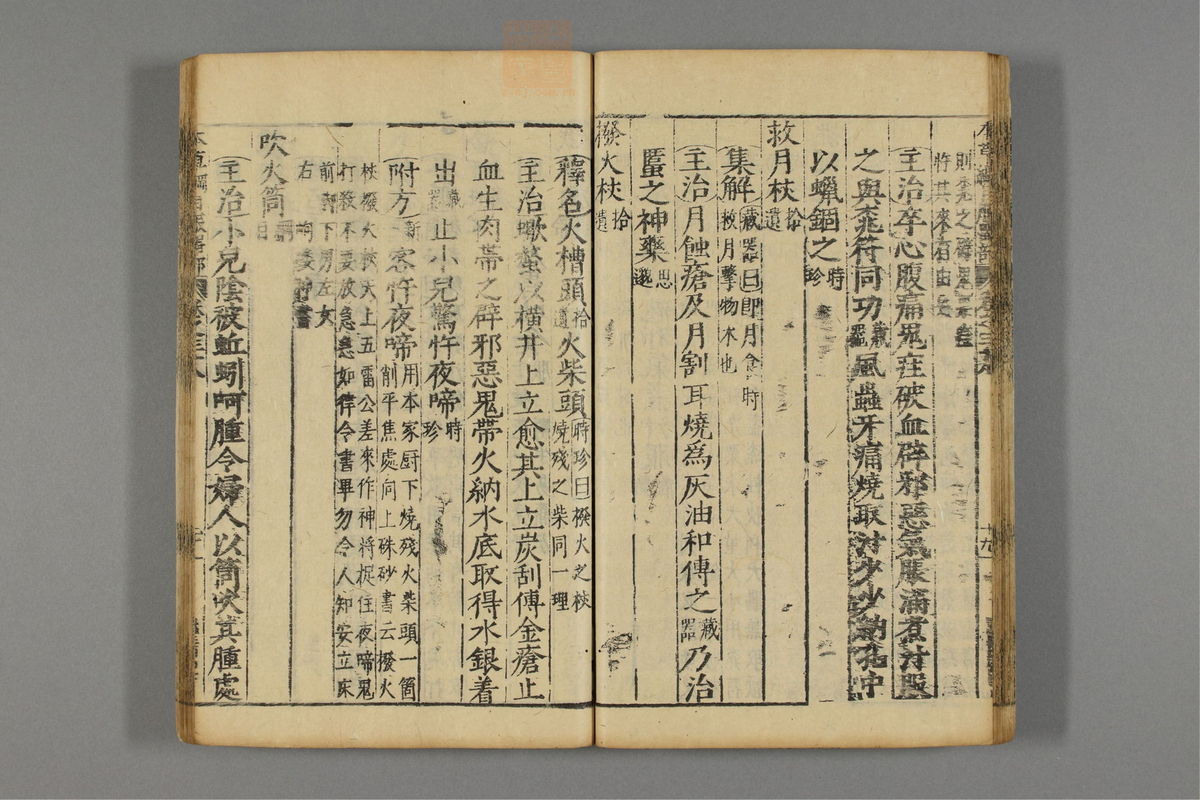 主治卒心腹痛鬼疰破血辟邪惡氣脹滿煮汁服
之與桃符同功藏器風蟲牙痛燒取汁少少納孔中
以蠟錮之時珍
救月杖拾遺
集解藏器曰即月食時
救月擊物木也
主治月蝕瘡及月割耳燒爲灰油和傅之藏器乃治
䘌之神藥思邈
撥火杖拾遺
釋名火槽頭拾遺火柴頭時珍曰撥火之杖
燒殘之柴同一理
主治蠍螫以橫井上立愈其上立炭刮傅金瘡止
血生肉帶之辟邪惡鬼帶火納水底取得水銀着
出藏器止小兒驚忤夜啼時珍
附方新客忤夜啼用本家厨下燒殘火柴頭一箇
削平焦處向上硃砂書云撥火
杖撥火杖天上五雷公差來作神將捉住夜啼鬼
打殺不要放急急如律令書畢勿令人知安立牀
前脚下男左女
右
吹火筒
主治小兒陰被蚯蚓呵腫令婦人以筒吹其腫處